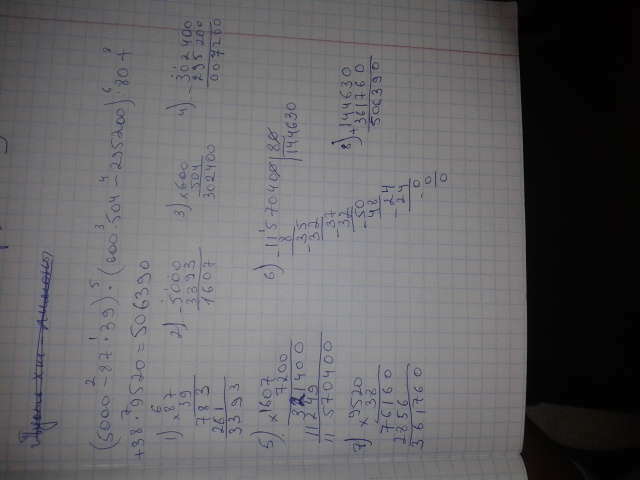 (5000 - 87 · 39) · (600 · 504 - 295200) : 80 +
+ 38 · 9520 = 506390
1) × 87
39
783
261
3393
2) - 5000
3393
1607
3) × 600
504
302400
4) - 302400
295200
007200
5) × 1607
7200
321400
11249
11570400
6) - 11570400 | 80
8 144630
- 35
32
- 37
32
- 50
48
- 24
24
- 0
0
0
7) × 9520
38
76160
2856
361760
8) + 144630
361760
506390